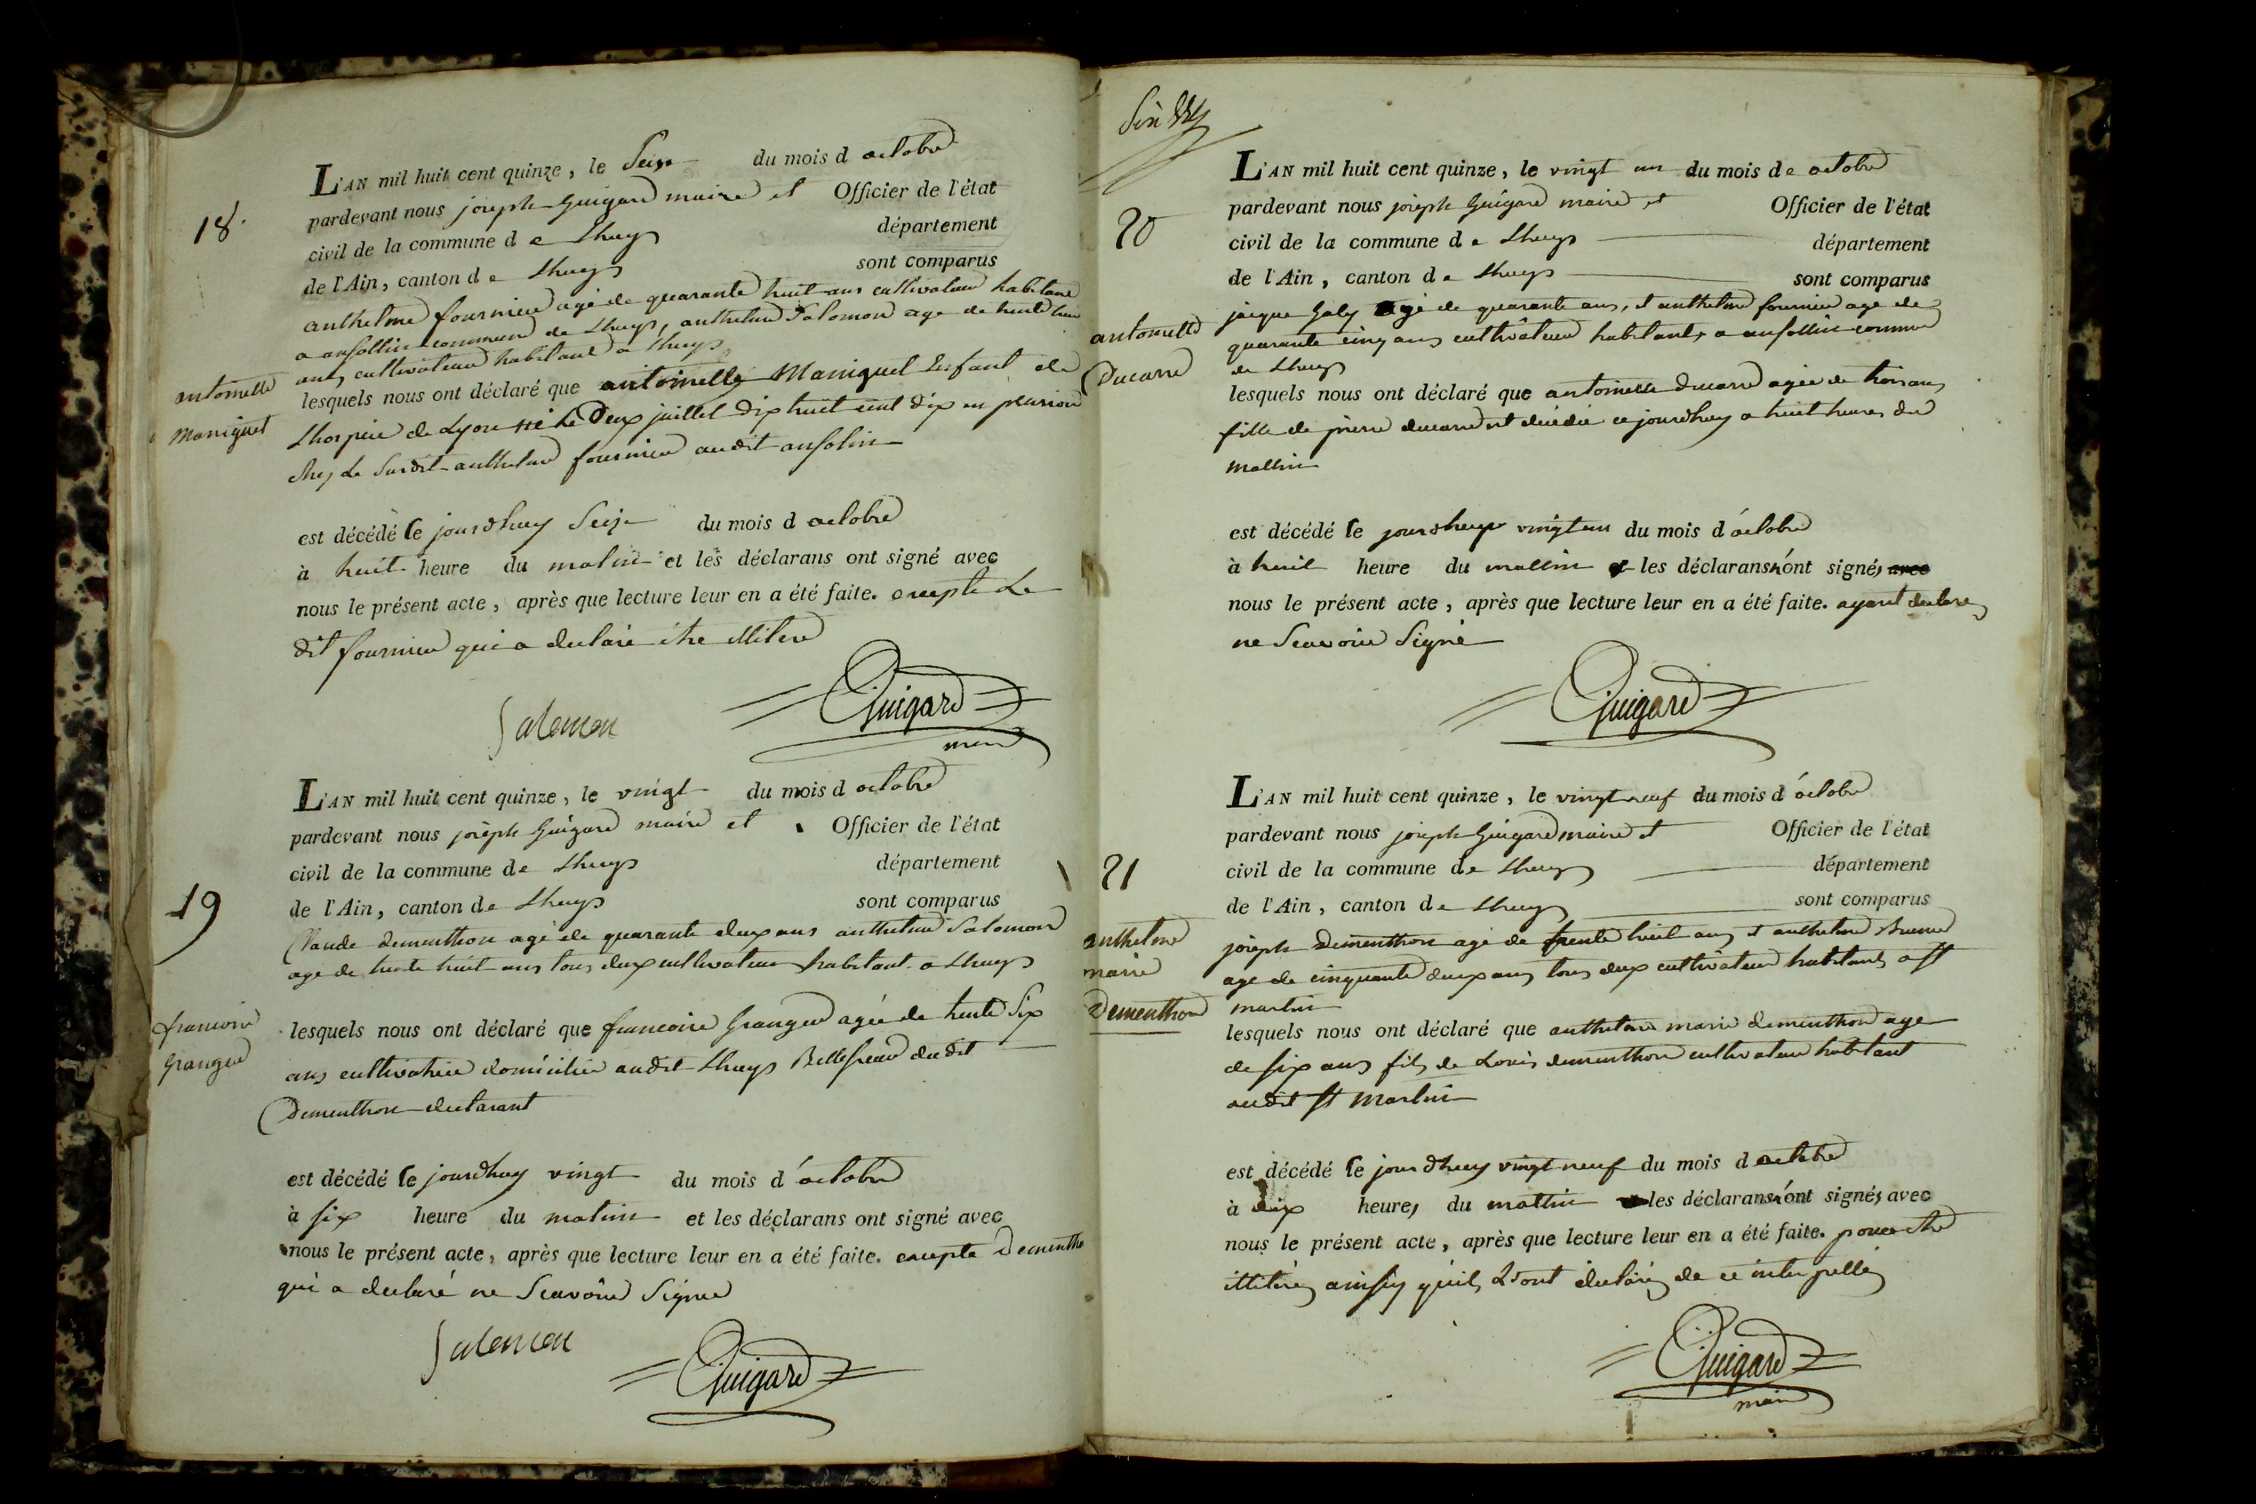 18.
L'AN mil huit cent quinze, le Seize du mois d octobre
pardevant nous joseph Guigard maire et Officier de l'état
civil de la commune d e Lhuys département
de l'Ain, canton d e Lhuys sont comparus
anthelme fournier agé de quarante huit ans cultivateur habitant
a ansollin commune de Lhuys, anthelme Salomon age de trente huit
ans cultivateur habitant a Lhuys
antoinette
Maniguet
lesquels nous ont déclaré que antoinette Maniguet Enfant de
Lhospice de Lyon né le Deux juillet dix huit cent dix en pension
chez Le Susdit anthelme fournier audit ansolin
est décédé le jourdhuy Seize du mois d octobre
à huit heure du matin et les déclarans ont signé avec
nous le présent acte, après que lecture leur en a été faite. excepté Le
dit fournier qui a declaré être illiteré
Salomon
Guigard
maire
19
L'AN mil huit cent quinze, le vingt du mois d octobre
pardevant nous joseph Guigard maire et Officier de l'état
civil de la commune de Lhuys département
de l'Ain, canton de Lhuys sont comparus
Claude dementhon agé de quarante deux ans anthelme Salomon
age de trente huit ans tous deux cultivateurs habitant a Lhuys
francoise
Granger
lesquels nous ont déclaré que francoise Granger agée de trente Six
ans cultivatrice domiciliée audit Lhuys Bellesoeur dudit
Dementhon declarant
est décédé le jourdhuy vingt du mois d'octobre
à six heure du matin et les déclarans ont signé avec
nous le présent acte, après que lecture leur en a été faite. excepté Dementho
qui a declaré ne Scavoir Signer
Salomon
Guigard
20
L'AN mil huit cent quinze, le vingt un du mois de octobre
pardevant nous joseph Guigard maire et Officier de l'état
civil de la commune d e Lhuys département
de l'Ain, canton d e Lhuys sont comparus
jacque Galy agé de quarante ans, et anthelme fournier age de
quarante cinq ans cultivateur habitants a ansollin commune
de Lhuys
antoinette
Ducarre
lesquels nous ont déclaré que antoinette ducarre agée de trois ans
fille de pierre ducarre est décédée ce jourdhuy a huit heures du
mattin
est décédé le jourdhuy vingt un du mois d'octobre
à huit heure du mattin et les déclarans n'ont signés avec
nous le présent acte, après que lecture leur en a été faite. ayant declarez
ne Scavoir Signé
Guigard
21
L'AN mil huit cent quinze, le vingt neuf du mois d'octobre
pardevant nous joseph Guigard maire et Officier de l'état
civil de la commune de Lhuys département
de l'Ain, canton de Lhuys sont comparus
joseph Dementhon agé de trente huit ans et anthelme Brunet
age de cinquante deux ans tous deux cultivateur habitants a St
martin
anthelme
marie
Dementhon
lesquels nous ont déclaré que anthelme marie dementhon age
de six ans fils de Louis dementhon cultivateur habitant
audit St Martin
est décédé le jourdhuy vingt neuf du mois d octobre
à dix heures du mattin les déclarans n'ont signés avec
nous le présent acte, après que lecture leur en a été faite. pour etre
illiterés ainsy quils L'ont declarés de ce interpellés
Guigard
maire